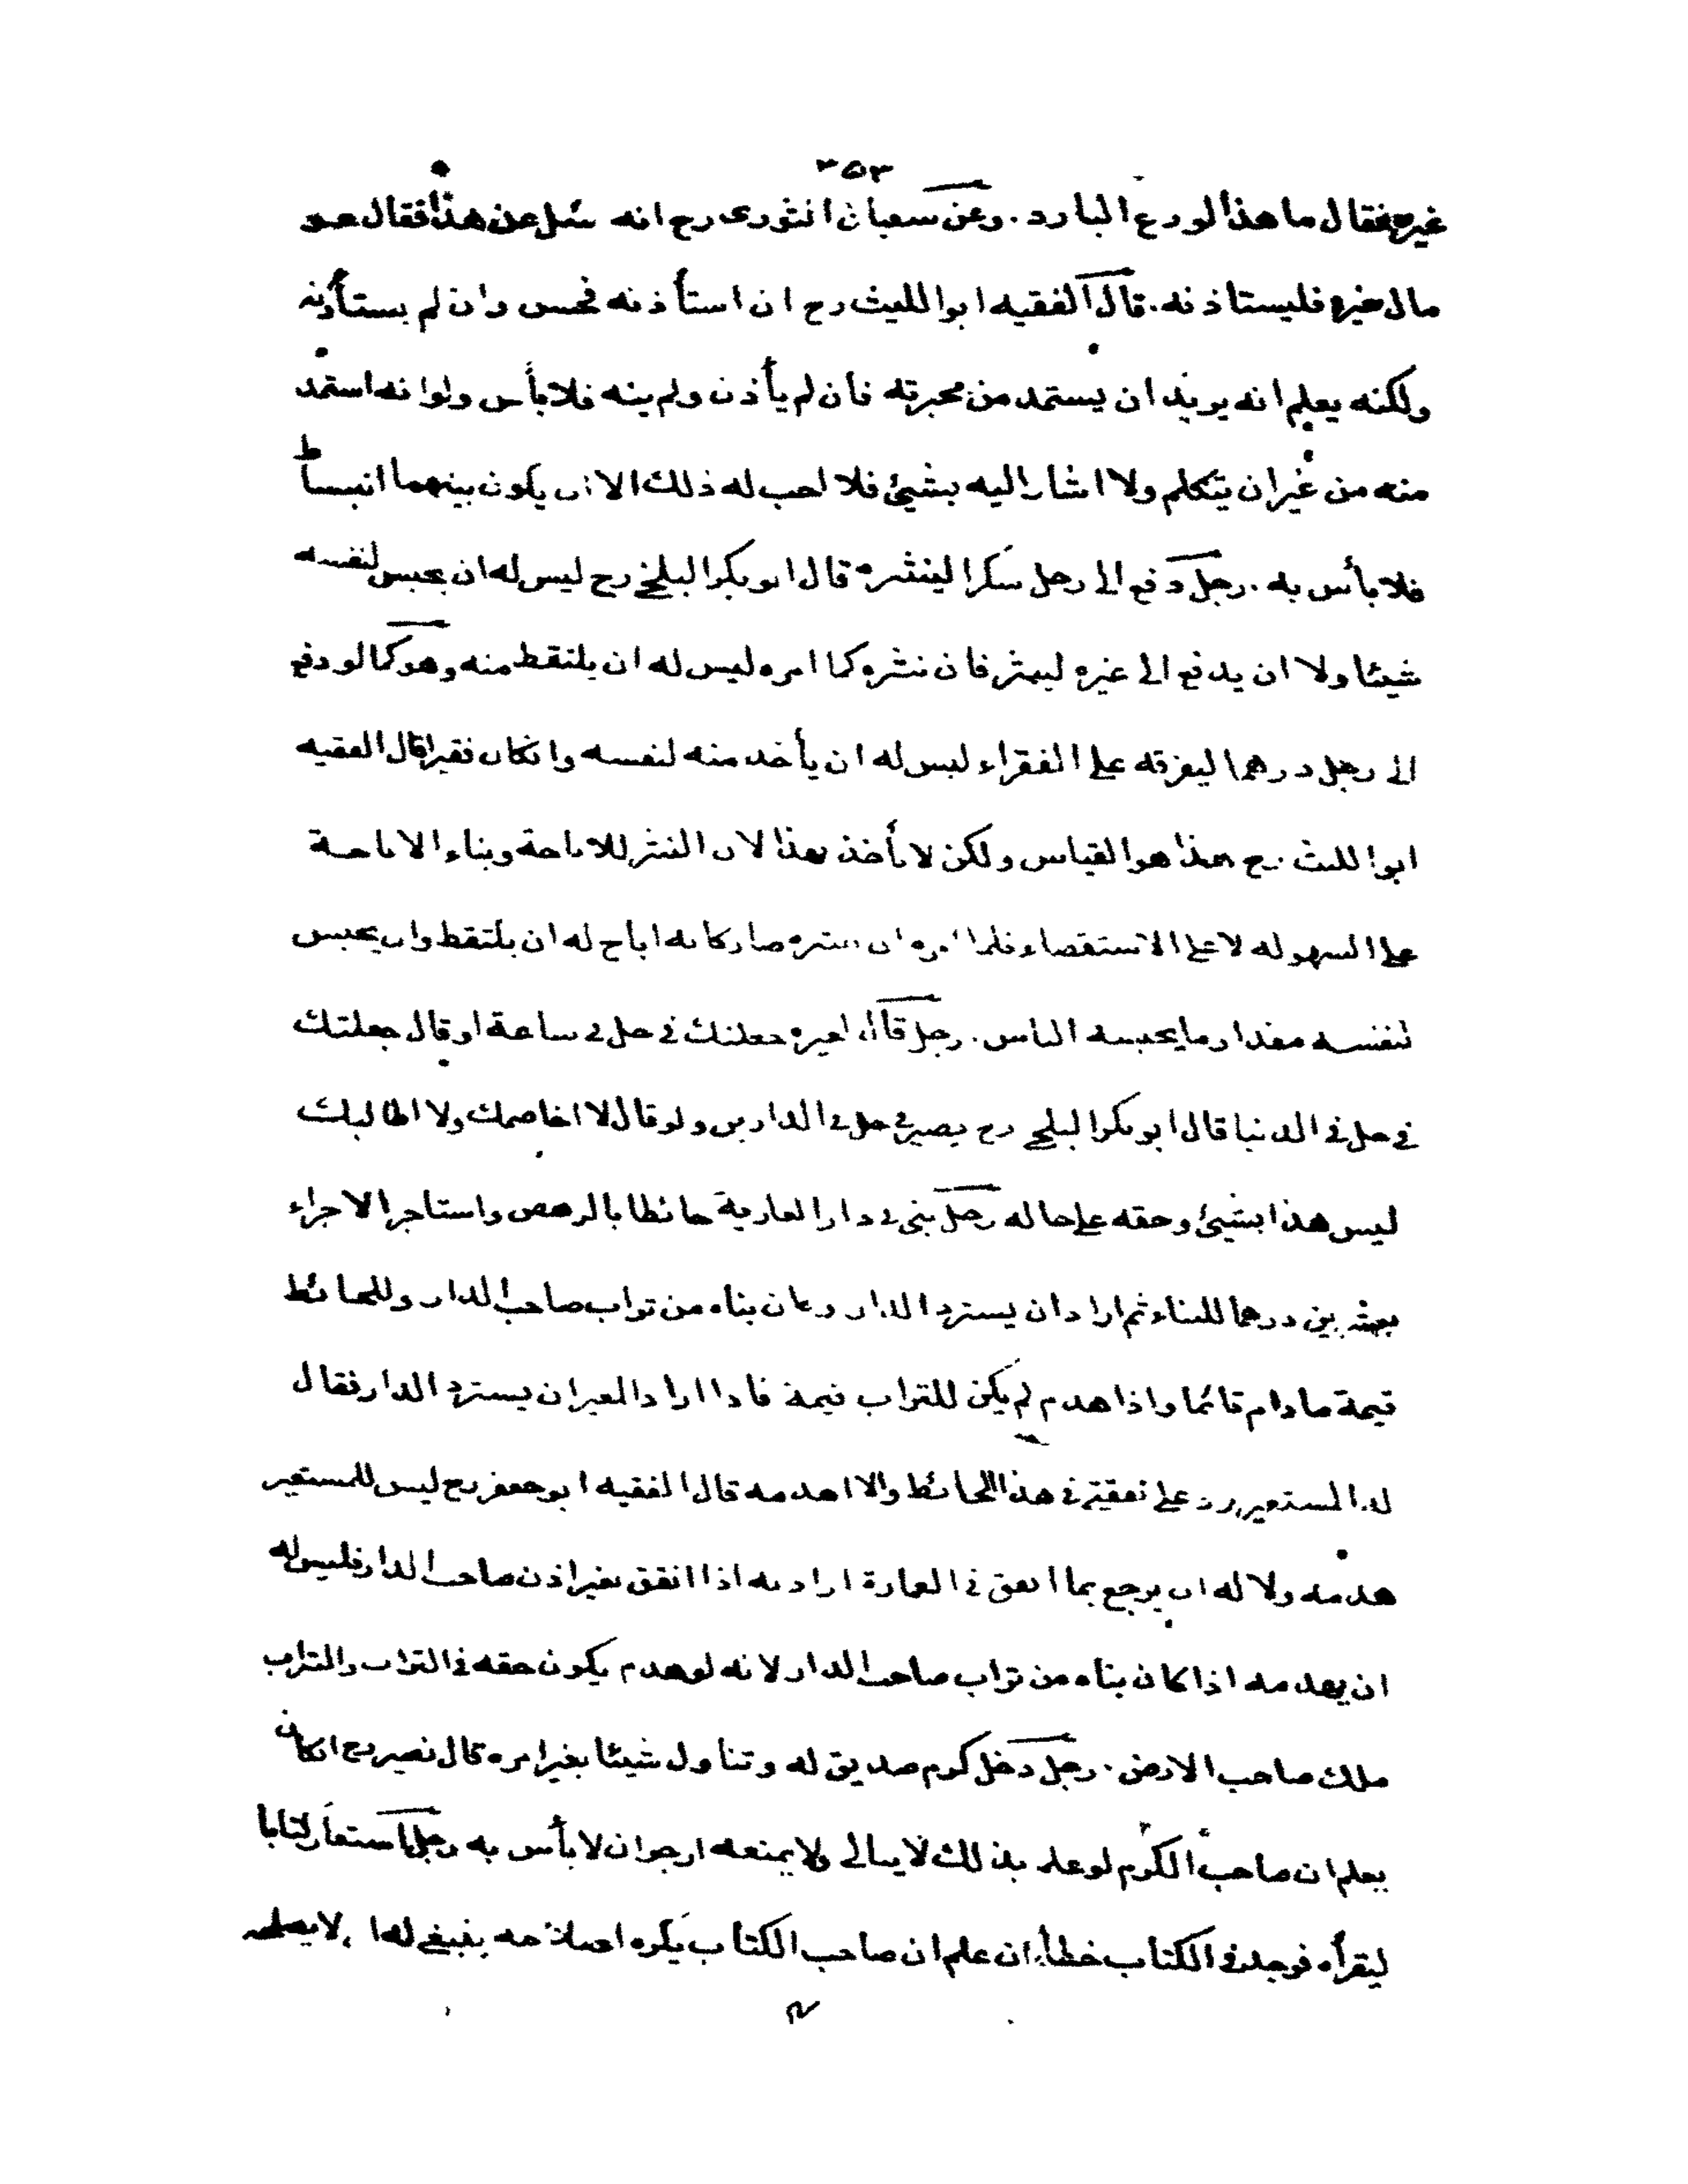 ٣٥٣
غيره فقال ما هذا الورع البارد. وعن سفيان الثورى رح انه سئل عن هذا فقال هو
مال غيره فليستاذنه. قال الفقيه ابوا لليث رح ان استأذنه فحسن وان لم يستأذنه
ولكنه يعلم انه يريد ان يستمد من محبرته فان لم يأذن ولم ينه فلا بأس ولو انه استمد
منه من غير ان يتكلم ولا اشار اليه بشيئ فلا احب له ذلك الا ان يكون بينهما انبساط
فلا بأس به. رجل دفع الى رجل سكرا لينثره قال ابو بكر البلخى رح ليس له ان يحبس لنفسه
شيئا ولا ان يدفع الى غيره لينثر فان نثره كما امره ليس له ان يلتقط منه وهو كما لو دفع
الى رجل درهما ليفرقه على الفقراء ليس له ان يأخذ منه لنفسه وانكان فقيرا قال الفقيه
ابوا لليث رح هذا هو القياس ولكن لا نأخذ بهذا لان النثر للاباحة وبناء الاباحة
على السهوله لا على الاستقصاء فلما امره ان ينثره صار كانه اباح له ان يلتقط وان يحبس
لنفسه مقدار ما يحبسه الناس. رجل قال لغيره جعلتك فى حل فى ساعة او قال جعلتك
فى حل فى الدنيا قال ابو بكر البلخى رح يصير فى حل فى الدارين ولو قال لا اخاصمك ولا اطالبك
ليس هذا بشيئ وحقه على حاله رجل بنى فى دار العارية حائطا بالرهص واستاجر الاجراء
بعشرين درهما للبناء ثم اراد ان يسترد الدار وكان بناه من تراب صاحب الدار وللحائط
قيمة ما دام قائما واذا هدم لم يكن للتراب قيمة فاذا اراد المعير ان يسترد الدار فقال
له المستعير رد على نفقتى فى هذا الحائط والا اهدمه قال الفقيه ابو جعفر رح ليس للمستعير
هدمه ولا له ان يرجع بما انفق فى العمارة اراد به اذا انفق بغير اذن صاحب الدار فليس له
ان يهدمه اذا كان بناه من تراب صاحب الدار لانه لو هدم يكون حقه فى التراب والتراب
ملك صاحب الارض. رجل دخل كرم صديق له وتناول شيئا بغير امره قال نصير رح انكان
يعلم ان صاحب الكرم لو علم بذلك لا يبالى ولا يمنعه ارجو ان لا بأس به رجل استعار كتابا
ليقرأه فوجد فى الكتاب خطأ ان علم ان صاحب الكتاب يكره اصلاحه ينبغى له ا لا يصلحه